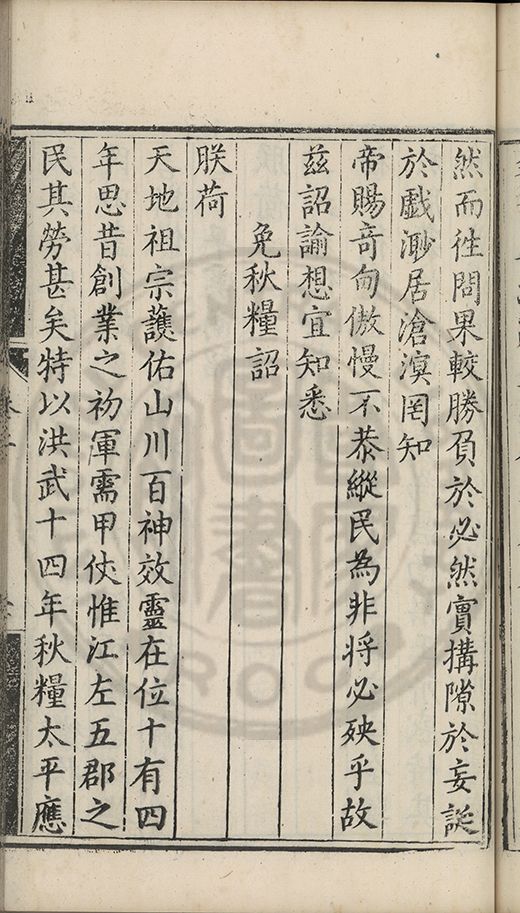 然而徃問果較勝負於必然實搆隙於妄誕
於戲渺居滄溟罔知
帝賜竒甸傲慢不恭縱民為非將必殃乎故
兹詔諭想宜知悉
免秋糧詔
朕荷
天地祖宗護佑山川百神效靈在位十有四
年思昔創業之初軍需甲伏惟江左五郡之
民其勞甚矣特以洪武十四年秋糧太平應